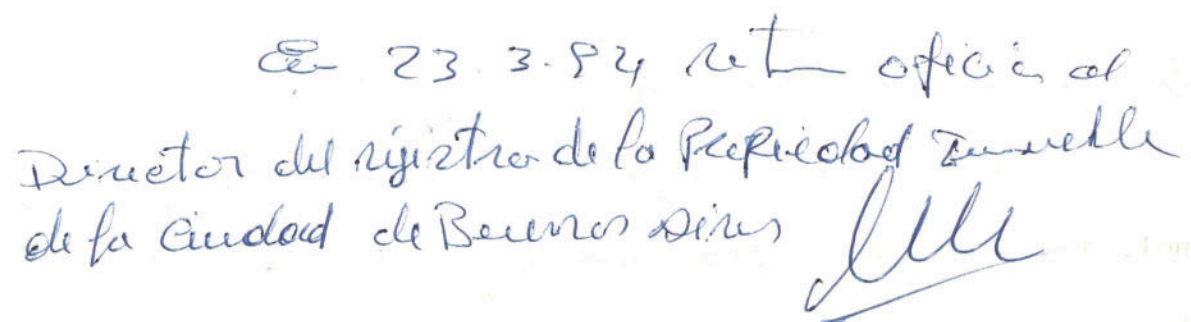 En 23.3.94 retiro oficio al
Director del registro de la Propiedad Inmueble
de la Ciudad de Buenos Aires